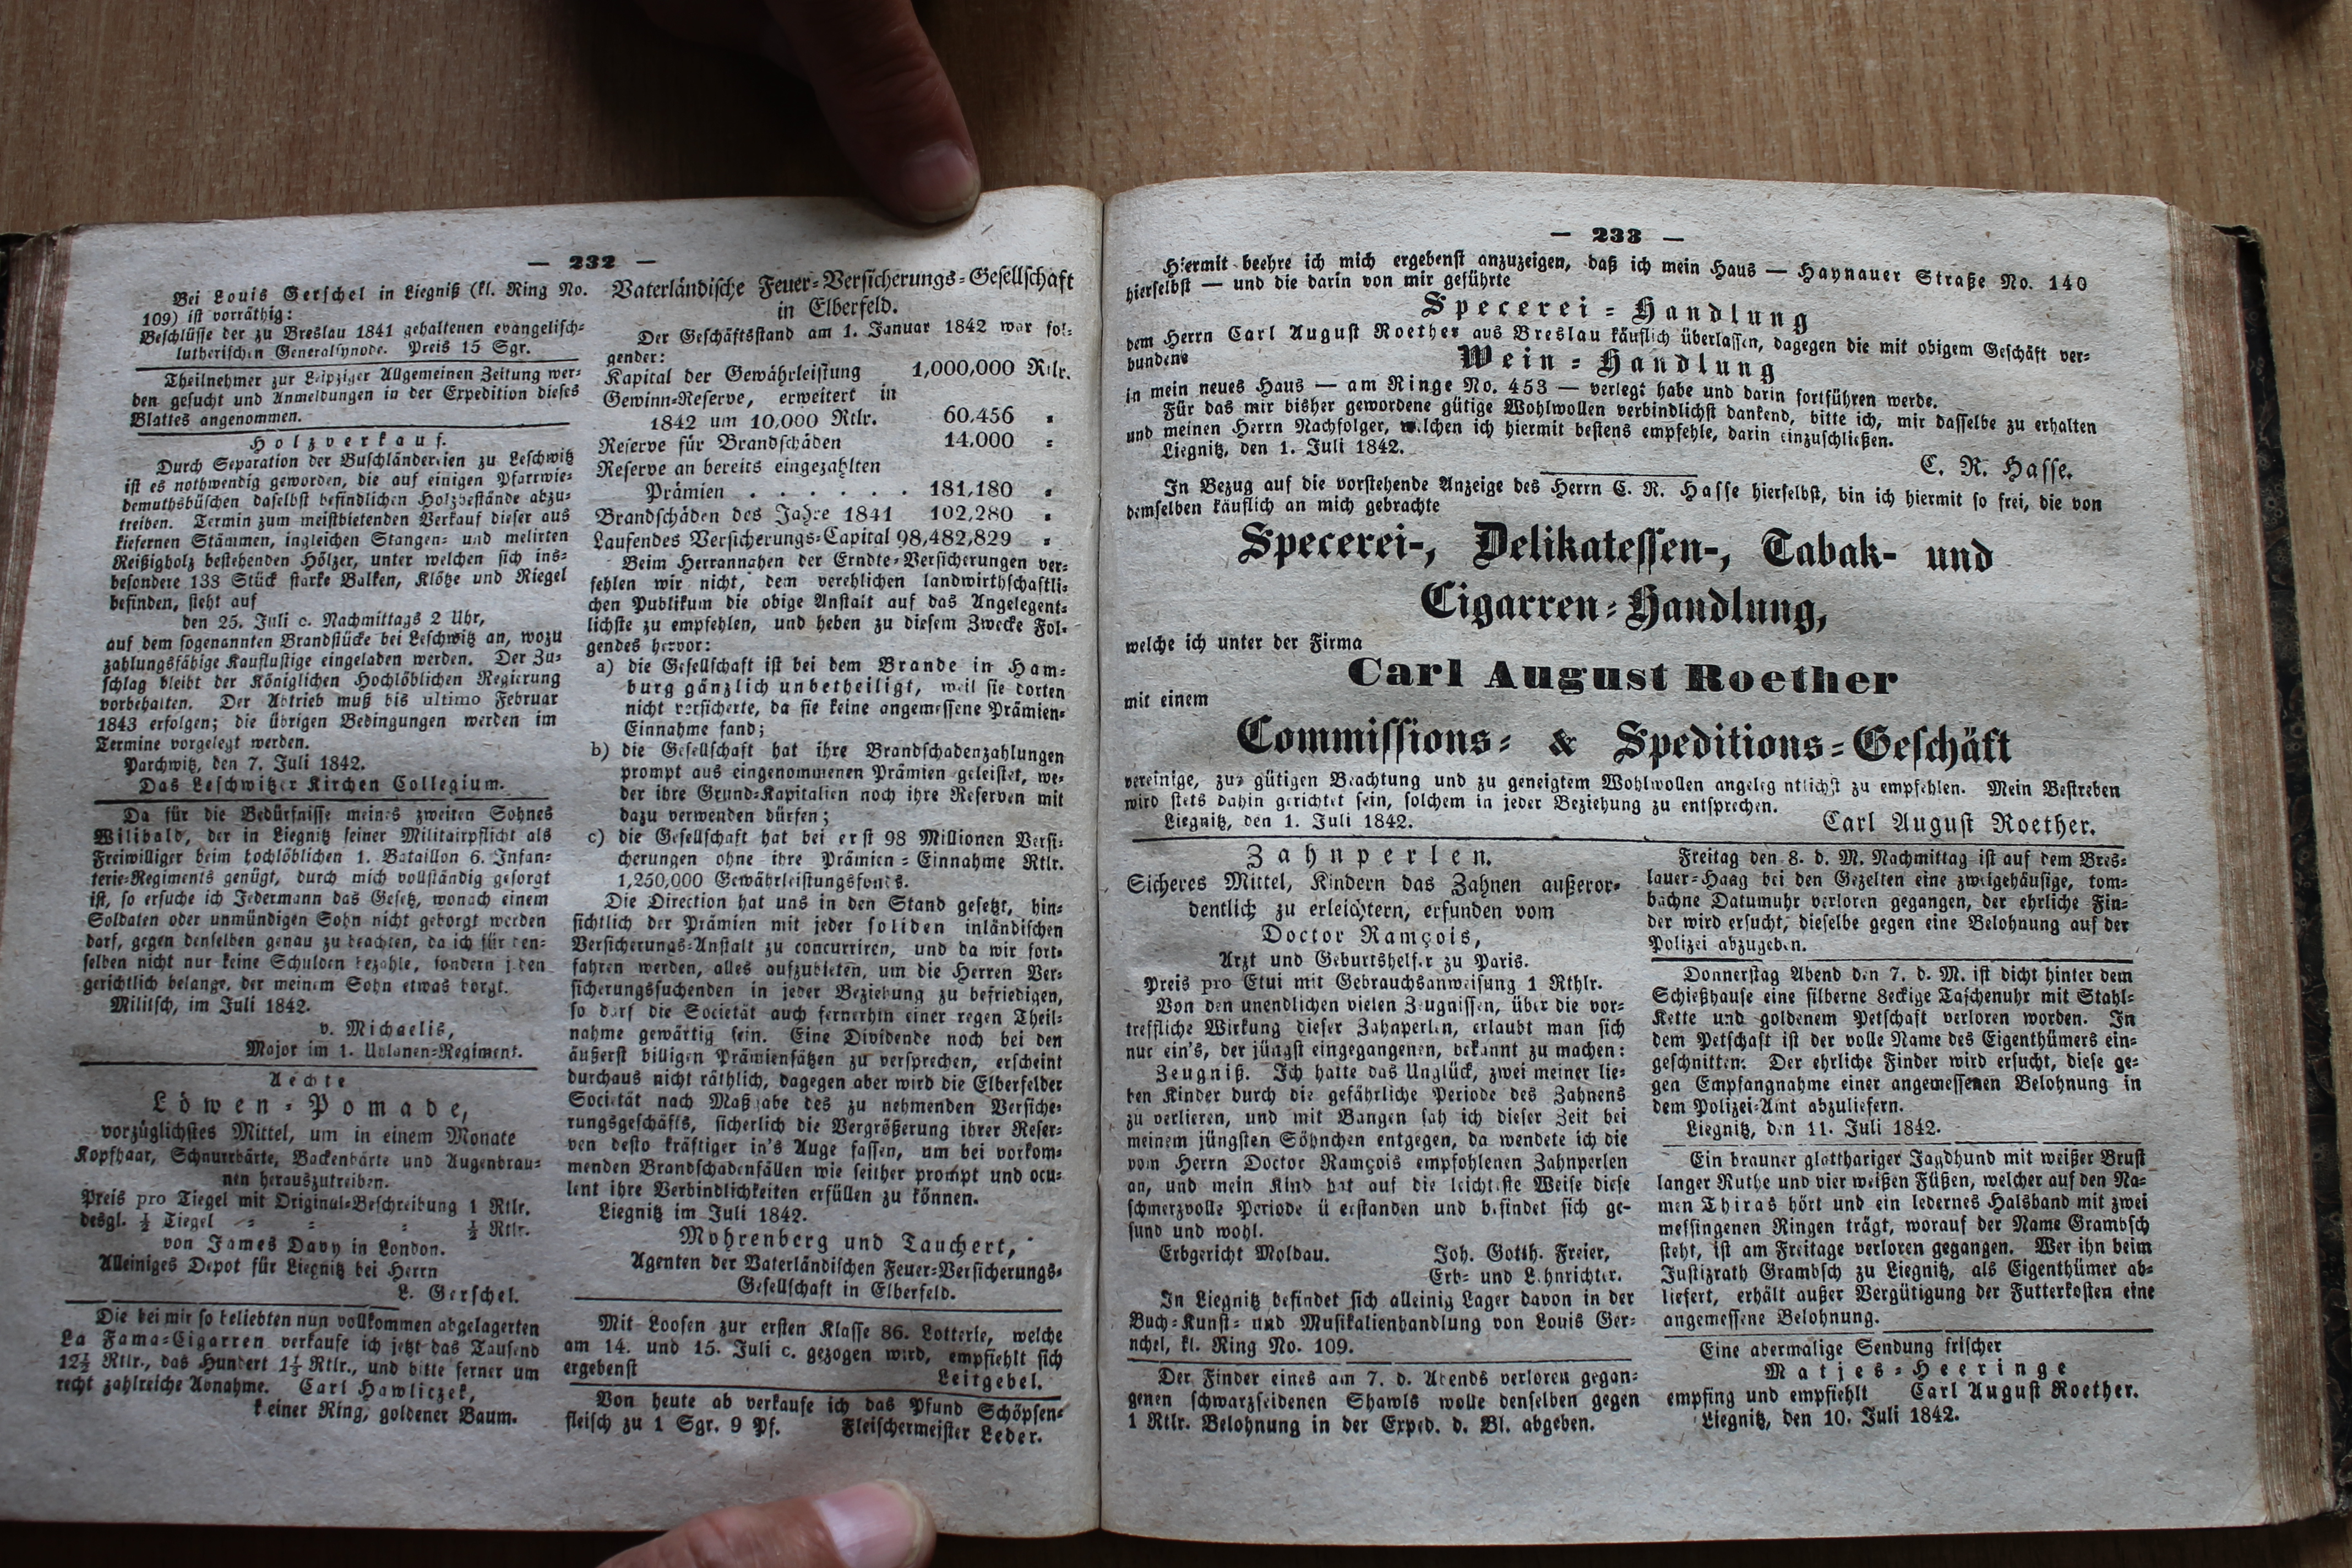 — 232 —
Bei Louis Gerschel in Liegnitz (kl. Ring No.
109) ist vorräthig:
Beschlüsse der zu Breslau 1841 gehaltenen evangelisch-
lutherischen Generalsynode. Preis 15 Sgr.
Theilnehmer zur Leipziger Allgemeinen Zeitung wer-
den gesucht und Anmeldungen in der Expedition dieses
Blattes angenommen.
Holzverkauf.
Durch Separation der Buschländereien zu Leschwitz
ist es nothwendig geworden, die auf einigen Pfarrwie-
demuthsbüschen daselbst befindlichen Holzbestände abzu-
treiben. Termin zum meistbietenden Verkauf dieser aus
kiefernen Stämmen, ingleichen Stangen- und melirten
Reißigholz bestehenden Hölzer, unter welchen sich ins-
besondere 138 Stück starke Balken, Klötze und Riegel
befinden, steht auf
den 25. Juli c. Nachmittags 2 Uhr,
auf dem sogenannten Brandstücke bei Leschwitz an, wozu
zahlungsfähige Kauflustige eingeladen werden. Der Zu-
schlag bleibt der Königlichen Hochlöblichen Regierung
vorbehalten. Der Abtrieb muß bis ultimo Februar
1843 erfolgen; die übrigen Bedingungen werden im
Termine vorgelegt werden.
Parchwitz, den 7. Juli 1842.
Das Leschwitzer Kirchen Collegium.
Da für die Bedürfnisse meines zweiten Sohnes
Wilibald, der in Liegnitz seiner Militairpflicht als
Freiwilliger beim hochlöblichen 1. Bataillon 6. Infan-
terie-Regiments genügt, durch mich vollständig gesorgt
ist, so ersuche ich Jedermann das Gesetz, wonach einem
Soldaten oder unmündigen Sohn nicht geborgt werden
darf, gegen denselben genau zu beachten, da ich für den-
selben nicht nur keine Schulden bezahle, sondern jeden
gerichtlich belange, der meinem Sohn etwas borgt.
Militsch, im Juli 1842.
v. Michaelis,
Major im 1. Uhlanen-Regiment.
Aechte
Löwen-Pomade,
vorzüglichstes Mittel, um in einem Monate
Kopfhaar, Schnurrbärte, Backenbärte und Augenbrau-
nen herauszutreiben.
Preis pro Tiegel mit Original-Beschreibung 1 Rtlr.
desgl. ½ Tiegel = = = ½ Rtlr.
von James Davy in London.
Alleiniges Depot für Liegnitz bei Herrn
L. Gerschel.
Die bei mir so beliebten nun vollkommen abgelagerten
La Fama-Cigarren verkaufe ich jetzt das Tausend
12½ Rtlr., das Hundert 1⅓ Rtlr., und bitte ferner um
recht zahlreiche Abnahme. Carl Hawliczek,
kleiner Ring, goldener Baum.
Vaterländische Feuer-Versicherungs-Gesellschaft
in Elberfeld.
Der Geschäftsstand am 1. Januar 1842 war fol-
gender:
Kapital der Gewährleistung 1,000,000 Rtlr.
Gewinn-Reserve, erweitert in
1842 um 10,000 Rtlr. 60,456 =
Reserve für Brandschäden 14,000 =
Reserve an bereits eingezahlten
Prämien . . . . . . 181,180 =
Brandschäden des Jahre 1841 102,280 =
Laufendes Versicherungs-Capital 98,482,829 =
Beim Herrannahen der Erndte-Versicherungen ver-
fehlen wir nicht, dem verehlichen landwirthschaftli-
chen Publikum die obige Anstalt auf das Angelegent-
lichste zu empfehlen, und heben zu diesem Zwecke Fol-
gendes hervor:
a) die Gesellschaft ist bei dem Brande in Ham-
burg gänzlich unbetheiligt, weil sie dorten
nicht versicherte, da sie keine angemessene Prämien-
Einnahme fand;
b) die Gesellschaft hat ihre Brandschadenzahlungen
prompt aus eingenommenen Prämien geleistet, we-
der ihre Grund-Kapitalien noch ihre Reserven mit
dazu verwenden dürfen;
c) die Gesellschaft hat bei erst 98 Millionen Versi-
cherungen ohne ihre Prämien-Einnahme Rtlr.
1,250,000 Gewährleistungsfonds.
Die Direction hat uns in den Stand gesetzt, hin-
sichtlich der Prämien mit jeder soliden inländischen
Versicherungs-Anstalt zu concurriren, und da wir fort-
fahren werden, alles aufzubieten, um die Herren Ver-
sicherungssuchenden in jeder Beziehung zu befriedigen,
so darf die Societät auch fernerhin einer regen Theil-
nahme gewärtig sein. Eine Dividende noch bei den
äußerst billigen Prämiensätzen zu versprechen, erscheint
durchaus nicht räthlich, dagegen aber wird die Elberfelder
Societät nach Maßgabe des zu nehmenden Versiche-
rungsgeschäfts, sicherlich die Vergrößerung ihrer Reser-
ven desto kräftiger in's Auge fassen, um bei vorkom-
menden Brandschadenfällen wie seither prompt und ocu-
lent ihre Verbindlichkeiten erfüllen zu können.
Liegnitz im Juli 1842.
Mohrenberg und Tauchert,
Agenten der Vaterländischen Feuer-Versicherungs-
Gesellschaft in Elberfeld.
Mit Loosen zur ersten Klasse 86. Lotterie, welche
am 14. und 15. Juli c. gezogen wird, empfiehlt sich
ergebenst Leitgebel.
Von heute ab verkaufe ich das Pfund Schöpsen-
fleisch zu 1 Sgr. 9 Pf. Fleischermeister Leder.
— 233 —
Hiermit beehre ich mich ergebenst anzuzeigen, daß ich mein Haus — Haynauer Straße No. 140
hierselbst — und die darin von mir geführte
Specerei-Handlung
dem Herrn Carl August Roether aus Breslau käuflich überlassen, dagegen die mit obigem Geschäft ver-
bundene
Wein-Handlung
in mein neues Haus — am Ringe No. 453 — verlegt habe und darin fortführen werde.
Für das mir bisher gewordene gütige Wohlwollen verbindlichst dankend, bitte ich, mir dasselbe zu erhalten
und meinen Herrn Nachfolger, welchen ich hiermit bestens empfehle, darin einzuschließen.
Liegnitz, den 1. Juli 1842.
C. R. Hasse.
In Bezug auf die vorstehende Anzeige des Herrn C. R. Hasse hierselbst, bin ich hiermit so frei, die von
demselben käuflich an mich gebrachte
Specerei-, Delikatessen-, Tabak- und
Cigarren-Handlung,
welche ich unter der Firma
Carl August Roether
mit einem
Commissions- & Speditions-Geschäft
vereinige, zur gütigen Beachtung und zu geneigtem Wohlwollen angelegentlichst zu empfehlen. Mein Bestreben
wird stets dahin gerichtet sein, solchem in jeder Beziehung zu entsprechen.
Liegnitz, den 1. Juli 1842.
Carl August Roether.
Zahnperlen.
Sicheres Mittel, Kindern das Zahnen außeror-
dentlich zu erleichtern, erfunden vom
Doctor Ramçois,
Arzt und Geburtshelfer zu Paris.
Preis pro Etui mit Gebrauchsanweisung 1 Rthlr.
Von den unendlichen vielen Zeugnissen, über die vor-
treffliche Wirkung dieser Zahnperlen, erlaubt man sich
nur ein's, der jüngst eingegangenen, bekannt zu machen:
Zeugniß. Ich hatte das Unglück, zwei meiner lie-
ben Kinder durch die gefährliche Periode des Zahnens
zu verlieren, und mit Bangen sah ich dieser Zeit bei
meinem jüngsten Söhnchen entgegen, da wendete ich die
vom Herrn Doctor Ramçois empfohlenen Zahnperlen
an, und mein Kind hat auf die leichteste Weise diese
schmerzvolle Periode überstanden und befindet sich ge-
sund und wohl.
Erbgericht Moldau. Joh. Gotth. Freier,
Erb- und Lehnrichter.
In Liegnitz befindet sich alleinig Lager davon in der
Buch-Kunst- und Musikalienhandlung von Louis Ger-
nchel, kl. Ring No. 109.
Der Finder eines am 7. d. Abends verloren gegan-
genen schwarzseidenen Shawls wolle denselben gegen
1 Rtlr. Belohnung in der Exped. d. Bl. abgeben.
Freitag den 8. d. M. Nachmittag ist auf dem Bres-
lauer-Haag bei den Gezelten eine zweigehäusige, tom-
bachne Datumuhr verloren gegangen, der ehrliche Fin-
der wird ersucht, dieselbe gegen eine Belohnung auf der
Polizei abzugeben.
Donnerstag Abend den 7. d. M. ist dicht hinter dem
Schießhause eine silberne 8eckige Taschenuhr mit Stahl-
Kette und goldenem Petschaft verloren worden. In
dem Petschaft ist der volle Name des Eigenthümers ein-
geschnitten. Der ehrliche Finder wird ersucht, diese ge-
gen Empfangnahme einer angemessenen Belohnung in
dem Polizei-Amt abzuliefern.
Liegnitz, den 11. Juli 1842.
Ein brauner glatthariger Jagdhund mit weißer Brust
langer Ruthe und vier weißen Füßen, welcher auf den Na-
men Thiras hört und ein ledernes Halsband mit zwei
messingenen Ringen trägt, worauf der Name Grambsch
steht, ist am Freitage verloren gegangen. Wer ihn beim
Justizrath Grambsch zu Liegnitz, als Eigenthümer ab-
liefert, erhält außer Vergütigung der Futterkosten eine
angemessene Belohnung.
Eine abermalige Sendung frischer
Matjes-Heeringe
empfing und empfiehlt Carl August Roether.
Liegnitz, den 10. Juli 1842.